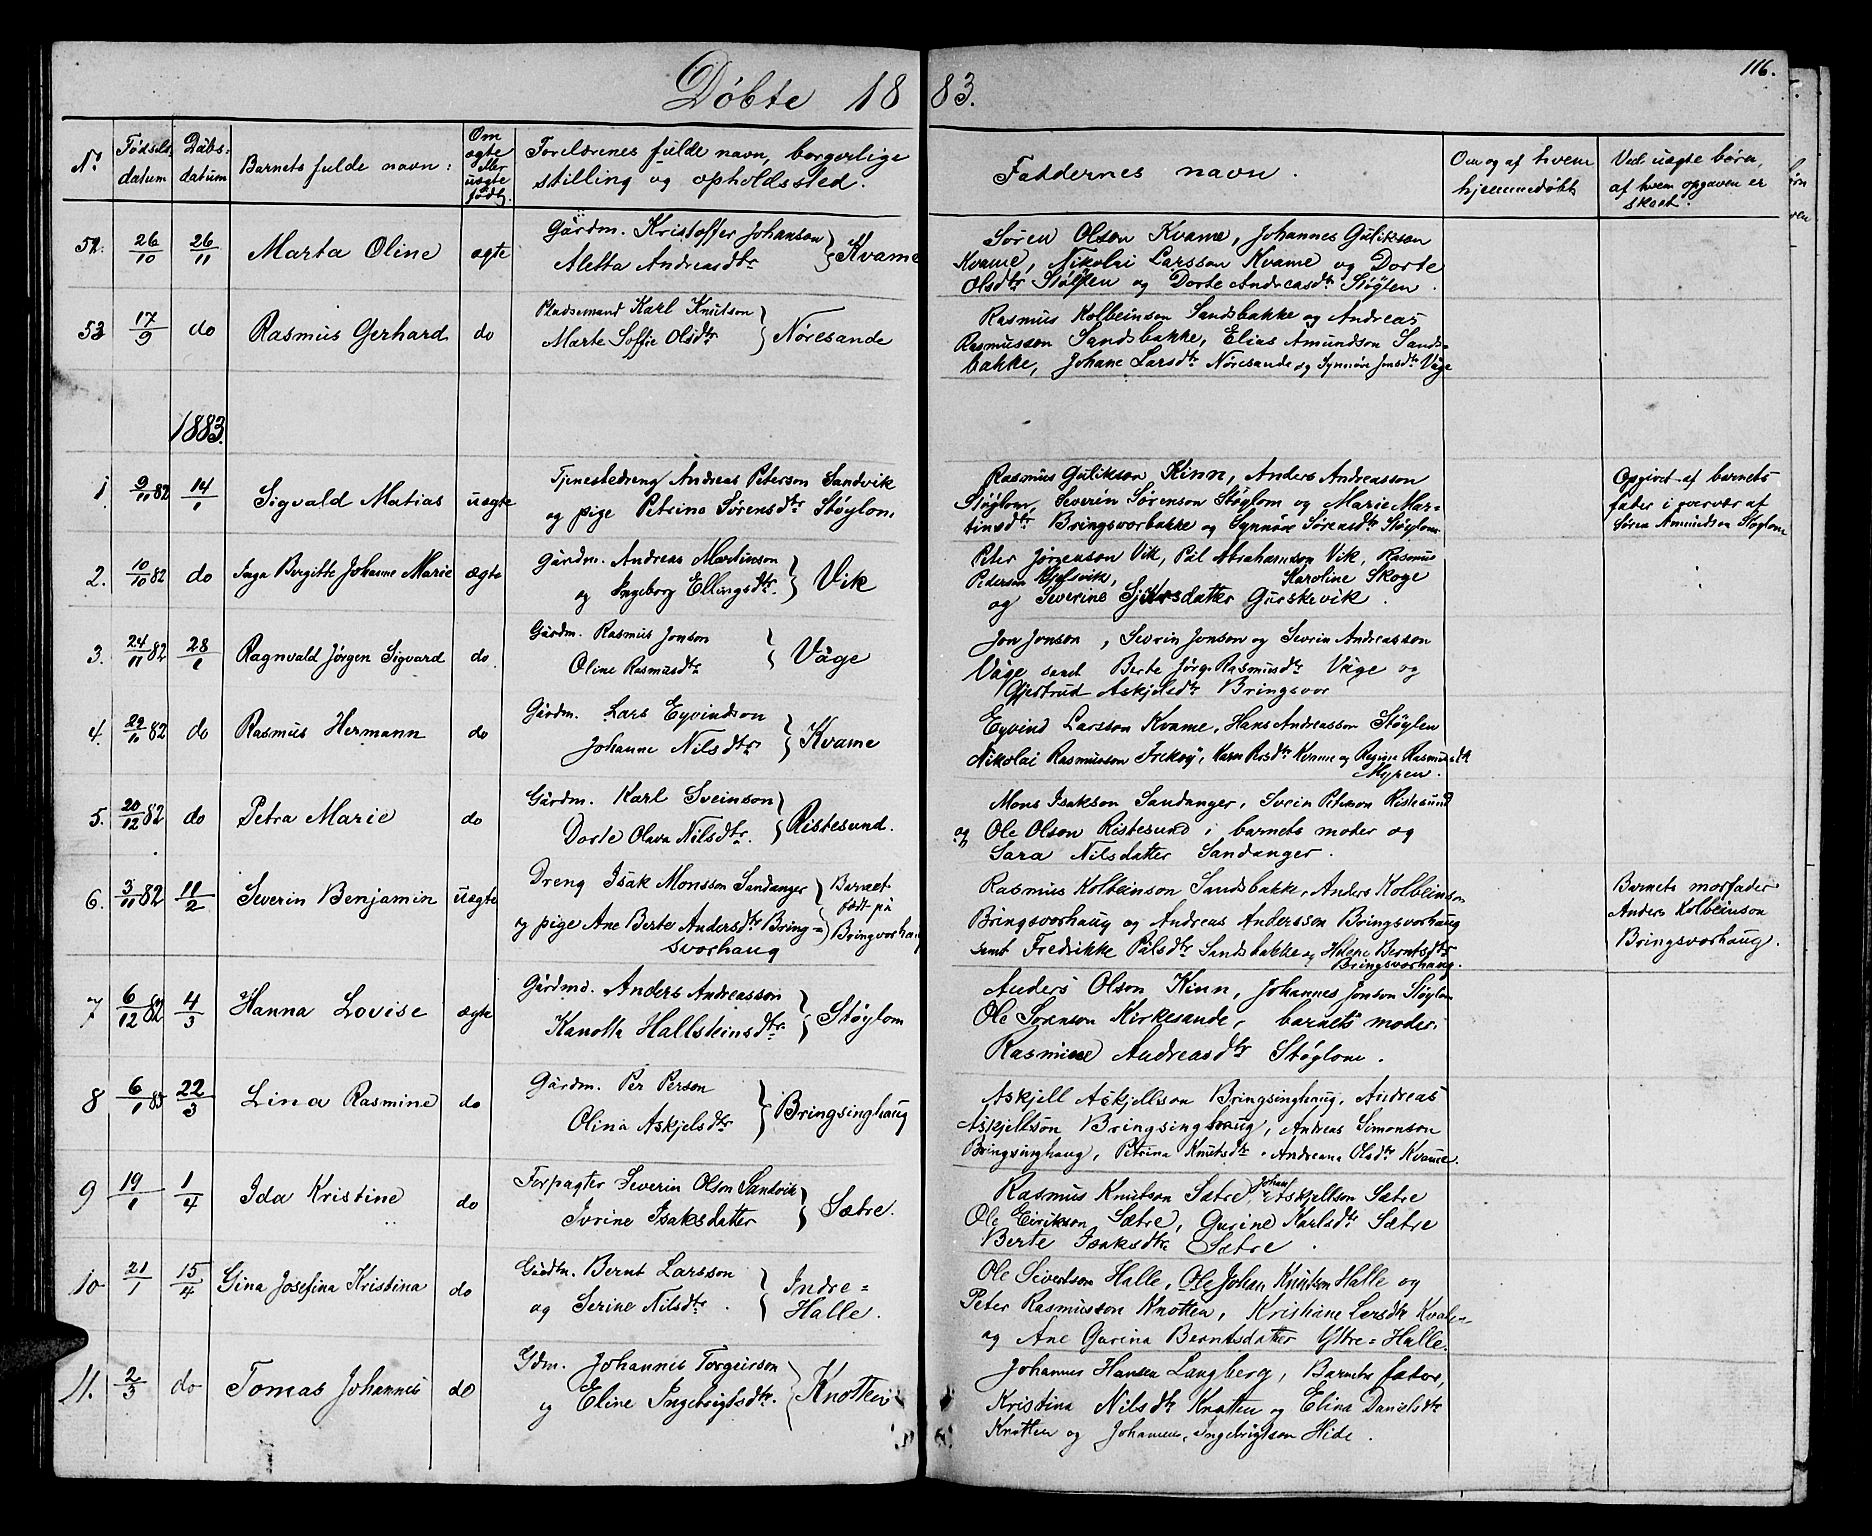 116.
Døbte 18 83.
No
Fødsels-
datum
Dåbs-
datum
Barnets fulde navn:
Om
ægte
eller
uægte
født.
Forelærenes fulde navn, borgerlige
stilling og opholdssted.
Faddernes navn.
Om og af hvem
hjemmedøbt
Ved uægte børn,
af hvem opgaven er
skeet.
52. 26/10 26/11 Marta Oline ægte
Gårdm. Kristoffer Johanson
Aletta Andreasdtr } Kvame
Søren Olson Kvame, Johannes Guliksøn
Kvame, Nikolai Larsson Kvame og Dorte
Olsdtr Støylen og Dorte Andreasdtr Støylen.
53 17/9 do Rasmus Gerhard do
Pladsemand Karl Knutson
Marte Soffie Olsdtr } Nøresande
Rasmus Kolbeinson Sandsbakke og Andreas
Rasmusson Sandsbakke, Elias Amundson Sands-
bakke, Johane Larsdtr Nøresande og Synnøve Jonsdtr Våge
1883.
1 9/11 82 14/1 Sigvald Matias uægte
Tjenestedreng Andreas Peterson Sandvik
og pige Petrina Sørensdtr Støylom
Rasmus Gulikson Kinn, Anders Andreasson
Støylom, Severin Sørenson Støylom og Marie Mar-
tinsdtr Bringsvorbakke og Synnøve Sørensdtr Støylom
Opgivet af barnets
fader i nærvær af
Søren Amundson Støylom
2. 10/10 82 do Inga Bergitte Johanne Marie ægte
Gårdm. Andreas Martinson
og Ingeborg Ellingsdtr. } Vik
Peter Jørgenson Vik, Pål Abrahamson Vik, Rasmus
Pederson Gjelsvik, Karoline Skoge
og Severine Sjursdatter Gurskevik.
3. 24/11 82 28/1 Ragnvald Jørgen Sigvard do.
Gårdm. Rasmus Jonson
Oline Rasmusdtr } Våge
Jon Jonson, Sevrin Jonson og Sevrin Andreasson
Våge samt Berte Jørg. Rasmusdtr Våge og
Gjertrud Askjelsdtr Bringsvor
4. 29/10 82 do Rasmus Hermann do
Gårdm. Lars Eyvindson
Johanne Nilsdtr } Kvame
Eyvind Larsson Kvame, Hans Andreasson Støylen
Nikolai Rasmusson Frekøy, Karen Persdtr Kvame og Regine Rasmusdtr
Myren.
5. 20/12 82 do Petra Marie do
Gårdm. Karl Sveinson
Dorte Olava Nilsdtr. } Ristesund.
Mons Isakson Sandanger, Svein Peterson Ristesund
og Ole Olson Ristesund i barnets moder og
Sara Nilsdatter Sandanger.
6. 3/11 82 11/2 Severin Benjamin uægte
Dreng Isak Monsson Sandanger
og pige Ane Berte Andersdtr Bring-
svorhaug
Barnet
født på
Bringvorhaug
Rasmus Kolbeinson Sandsbakk, Anders Kolbeinson
Bringsvorhaug og Andreas Andersson Bringsvorhaug
samt Fredrikke Pålsdtr Sandsbakke og Helene Berntsdtr
Bringsvorhaug.
Barnets morfader
Anders Kolbeinson
Bringsvorhaug.
7 6/12 82 4/3 Hanna Lovise ægte
Gårdmd. Anders Andreasson
Kanotta Hallsteinsdtr } Støylom
Anders Olson Kinn, Johannes Jonson Støylom
Ole Sørenson Kirkesande, barnets moder,
Rasmine Andreasdtr Støylom.
8 6/1 83 22/3 Lina Rasmine do
Gårdm. Per Person
Olina Askjelsdtr } Bringsinghaug
Askjell Askjellson Bringsinghaug, Andreas
Askjellson Bringsinghaug, Andreas Simonson
Bringsinghaug, Petrina Knutsdtr. Andreana Olsdtr Kvame.
9 19/1 1/4 Ida Kristine do
Forpagter Severin Olson Sandvik
Ivrine Isaksdatter } Sætre.
Rasmus Knutson Sætre, Johan Askjellson Sætre
Ole Eirikson Sætre, Gurine Karlsdtr Sætre
Berte Isaksdtr Sætre.
10 21/1 15/4 Gina Josefina Kristina do
Gårdm. Bernt Larsson
og Serine Nilsdtr. } Indre-
Halle.
Ole Sivertson Halle, Ole Johan Knutson Halle og
Peter Rasmusson Knotten, Kristiane Larsdtr
og Ane Gurina Berntsdatter Ytre-Halle.
11. 2/3 do Tomas Johannes do
Gdm. Johannes Torgeirson
og Eline Ingebrigtsdtr. } Knotten
Johannes Hansen Langberg, Barnets fader,
Kristina Nilsdtr Knotten og Elina Danielsdtr
Knotten og Johannes Ingebrigtson Hide.